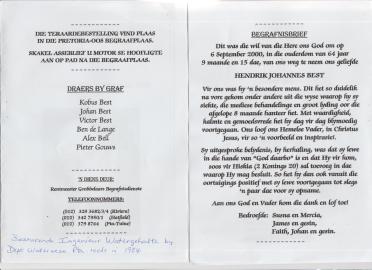 DIE TERAARDEBESTELLING VIND PLAAS
IN DIE PRETORIA-OOS BEGRAAFPLAAS.
SKAKEL ASSEBLIEF U MOTOR SE HOOFLIGTE
AAN OP PAD NA DIE BEGRAAFPLAAS.
DRAERS BY GRAF
Kobus Best
Johan Best
Victor Best
Ben de Lange
Alex Bell
Pieter Gouws
'N DIENS DEUR:
Rentmeester Grobbelaars Begrafnisdienste
TELEFOONNOMMERS:
(012) 328 3682/3/4 (Riviera)
(012) 342 7990/1 (Hatfield)
(012) 379 8764 (Pta-Tuine)
Ingenieur Watergehalte by
Dept Waterwese Pta reeds in 1984
BEGRAFNISBRIEF
Dit was die wil van die Here ons God om op
6 September 2000, in die ouderdom van 64 jaar
9 maande en 15 dae, van ons weg te neem ons geliefde
HENDRIK JOHANNES BEST
Vir ons was hy 'n besondere mens. Dit het so duidelik
na vore gekom onder andere uit die wyse waarop hy sy
siekte, die mediese behandelings en groot lyding oor die
afgelope 8 maande hanteer het. Met waardigheid,
kalmte en gemoedsrede het hy dag vir dag blymoedig
voortgegaan. Ons loof ons Hemelse Vader, in Christus
Jesus, vir so 'n voorbeeld en inspirasie!
Sy uitgesproke belydenis, by herhaling, was dat sy lewe
in die hande van "God daarbo" is en dat Hy vir hom,
soos vir Hiskia (2 Konings 20) sal toevoeg in dae
waarop Hy mag besluit. So het hy dan ook vanuit die
oortuigings positief met sy lewe voortgegaan tot slegs
'n paar dae voor sy opname.
Aan ons God en Vader kom die dank en lof toe!
Bedroefde: Suena en Mercia,
James en gesin,
Faith, Johan en gesin.